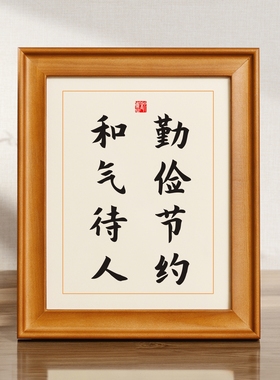 勤俭节约
和气待人